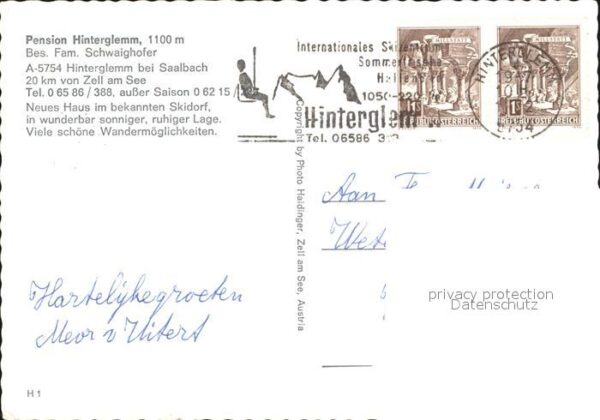 Pension Hinterglemm, 1100 m
Bes. Fam. Schwaighofer
A-5754 Hinterglemm bei Saalbach
20 km von Zell am See
Tel. 0 65 86 / 388, außer Saison 0 62 15
Neues Haus im bekannten Skidorf,
in wunderbar sonniger, ruhiger Lage.
Viele schöne Wandermöglichkeiten.
Internationales Skizentrum
Sommerfrische
Hallenbad
1050-220
Hinterglemm
Tel. 06586
MILLSTATT
MILLSTATT
REPUBLIK ÖSTERREICH
REPUBLIK ÖSTERREICH
HINTERGLEMM
5754
Copyright by Photo Haidinger, Zell am See, Austria
Aan
Hartelijke groeten
Meor v Uitert
privacy protection
Datenschutz
H 1